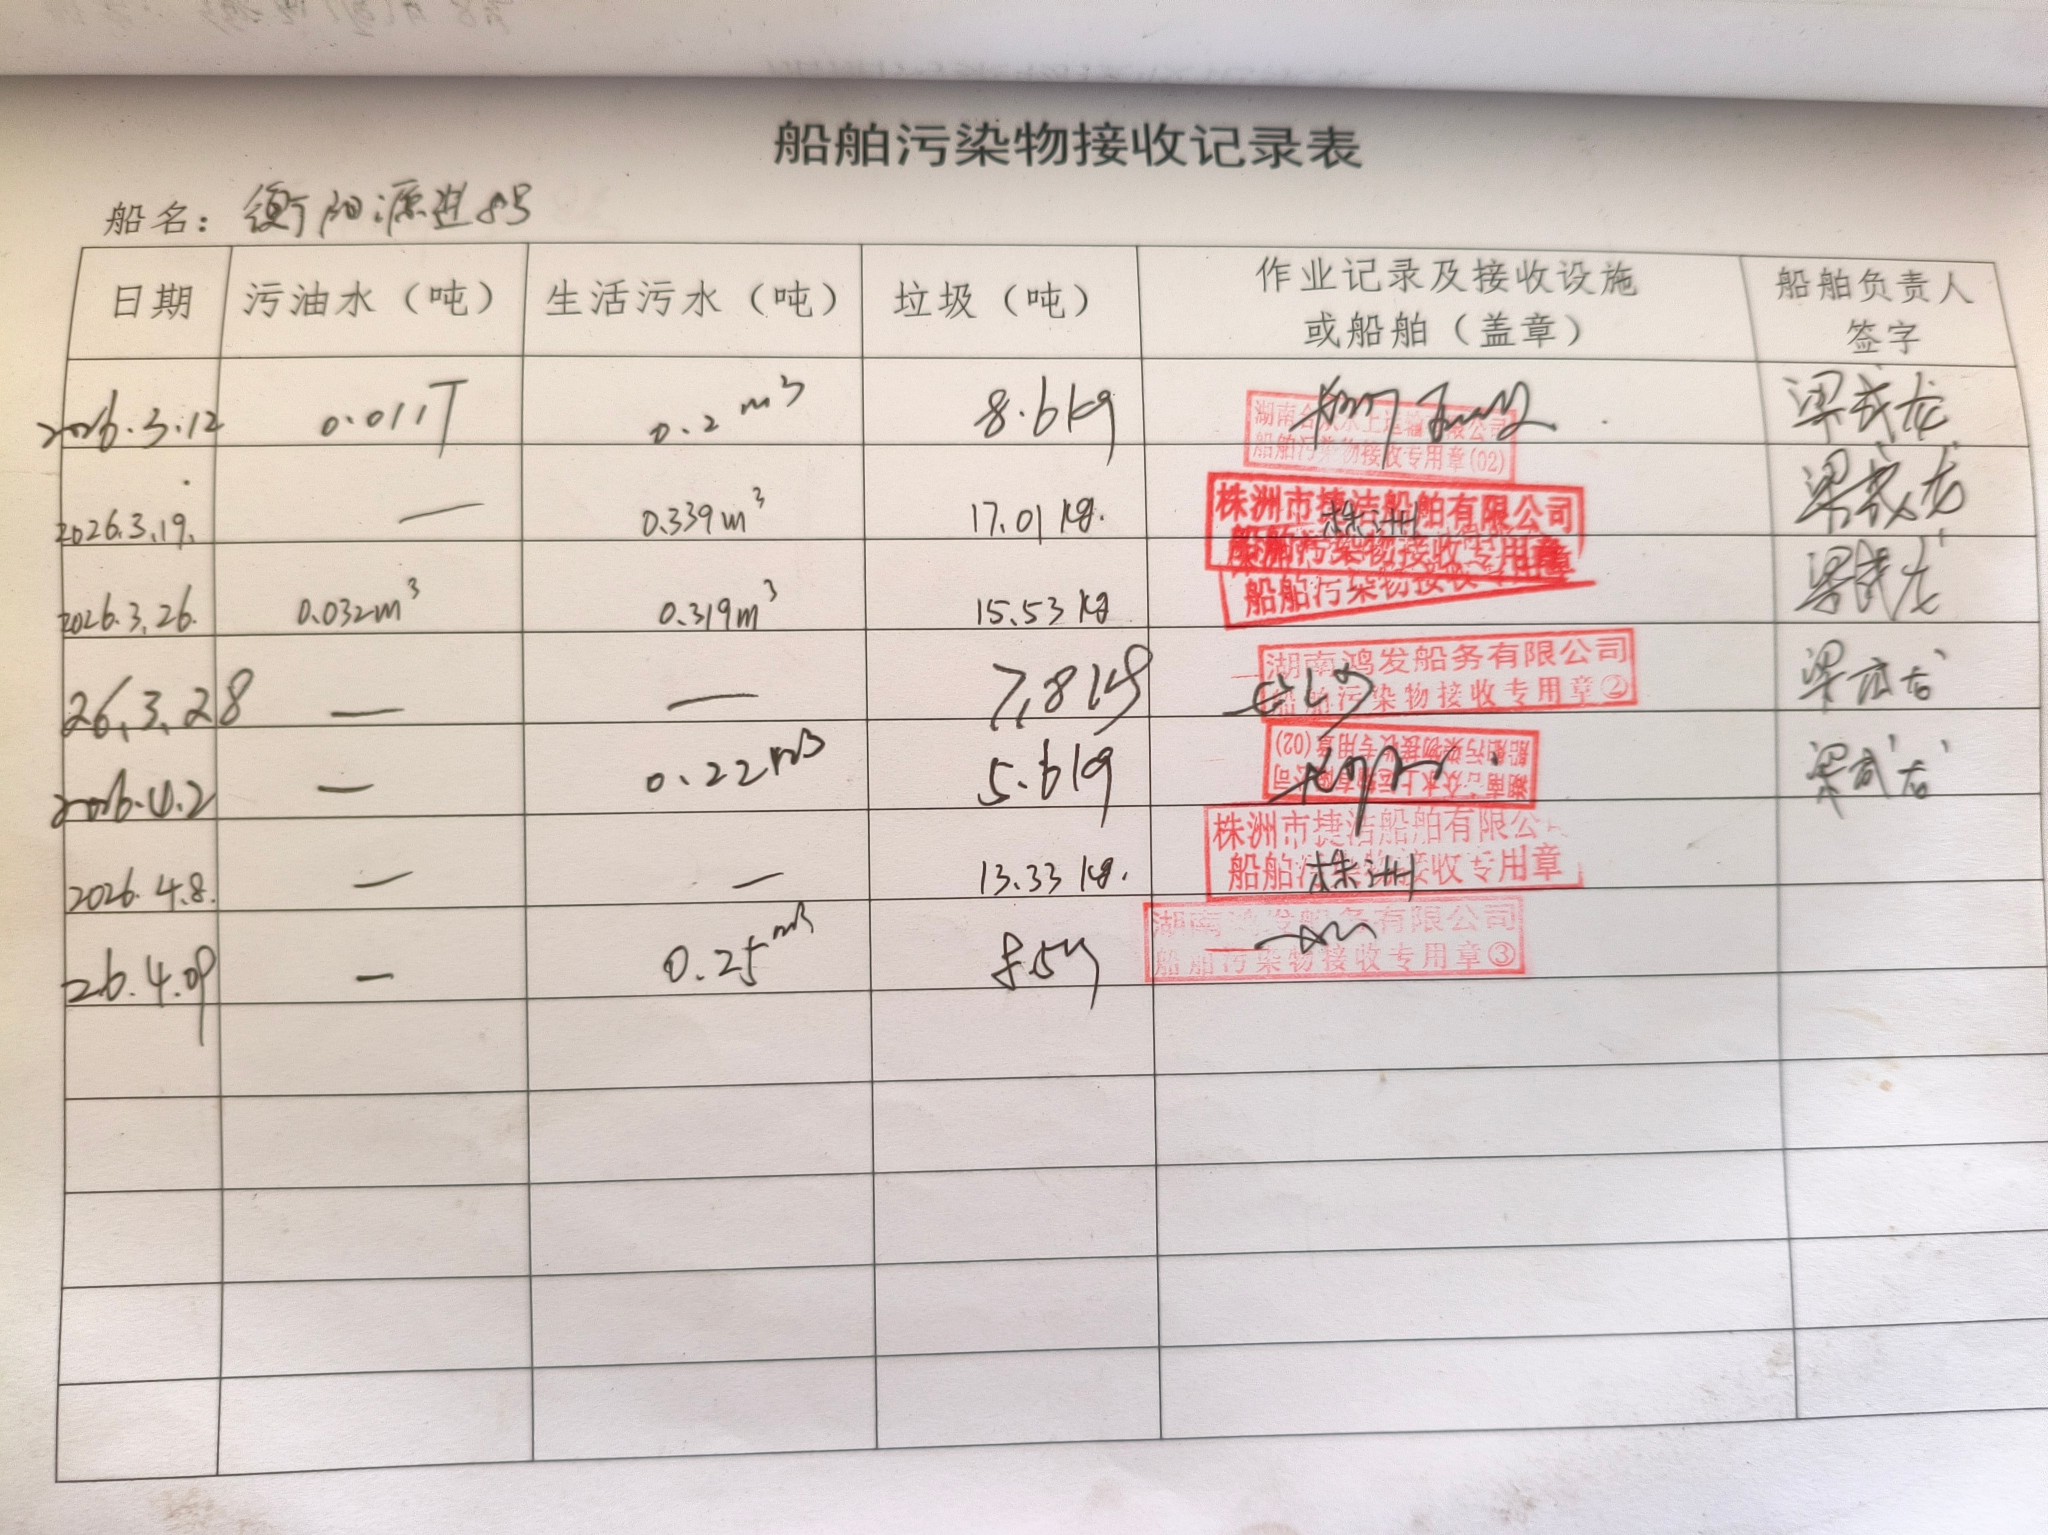 船舶污染物接收记录表
船名：衡阳源进8号
日期 污油水（吨） 生活污水（吨） 垃圾（吨） 作业记录及接收设施或船舶（盖章） 船舶负责人签字
2026.3.12 0.011T 0.2 m³ 8.6kg 湖南 水上运输有限公司 船舶污染物接收专用章(02)
2026.3.19. — 0.339m³ 17.01kg. 株洲市捷洁船舶有限公司 船舶污染物接收专用章 株洲
2026.3.26. 0.032m³ 0.319m³ 15.53kg 船舶污染物接收专用章
26.3.28 — — 7.8kg 湖南鸿发船务有限公司 船舶污染物接收专用章②
2026.4.2 — 0.22m³ 5.6kg 船舶污染物接收专用章(02)
2026.4.8. — — 13.33kg. 株洲市捷洁船舶有限公司 船舶污染物接收专用章 株洲
26.4.09 — 0.25m³ 湖南鸿发船务有限公司 船舶污染物接收专用章③